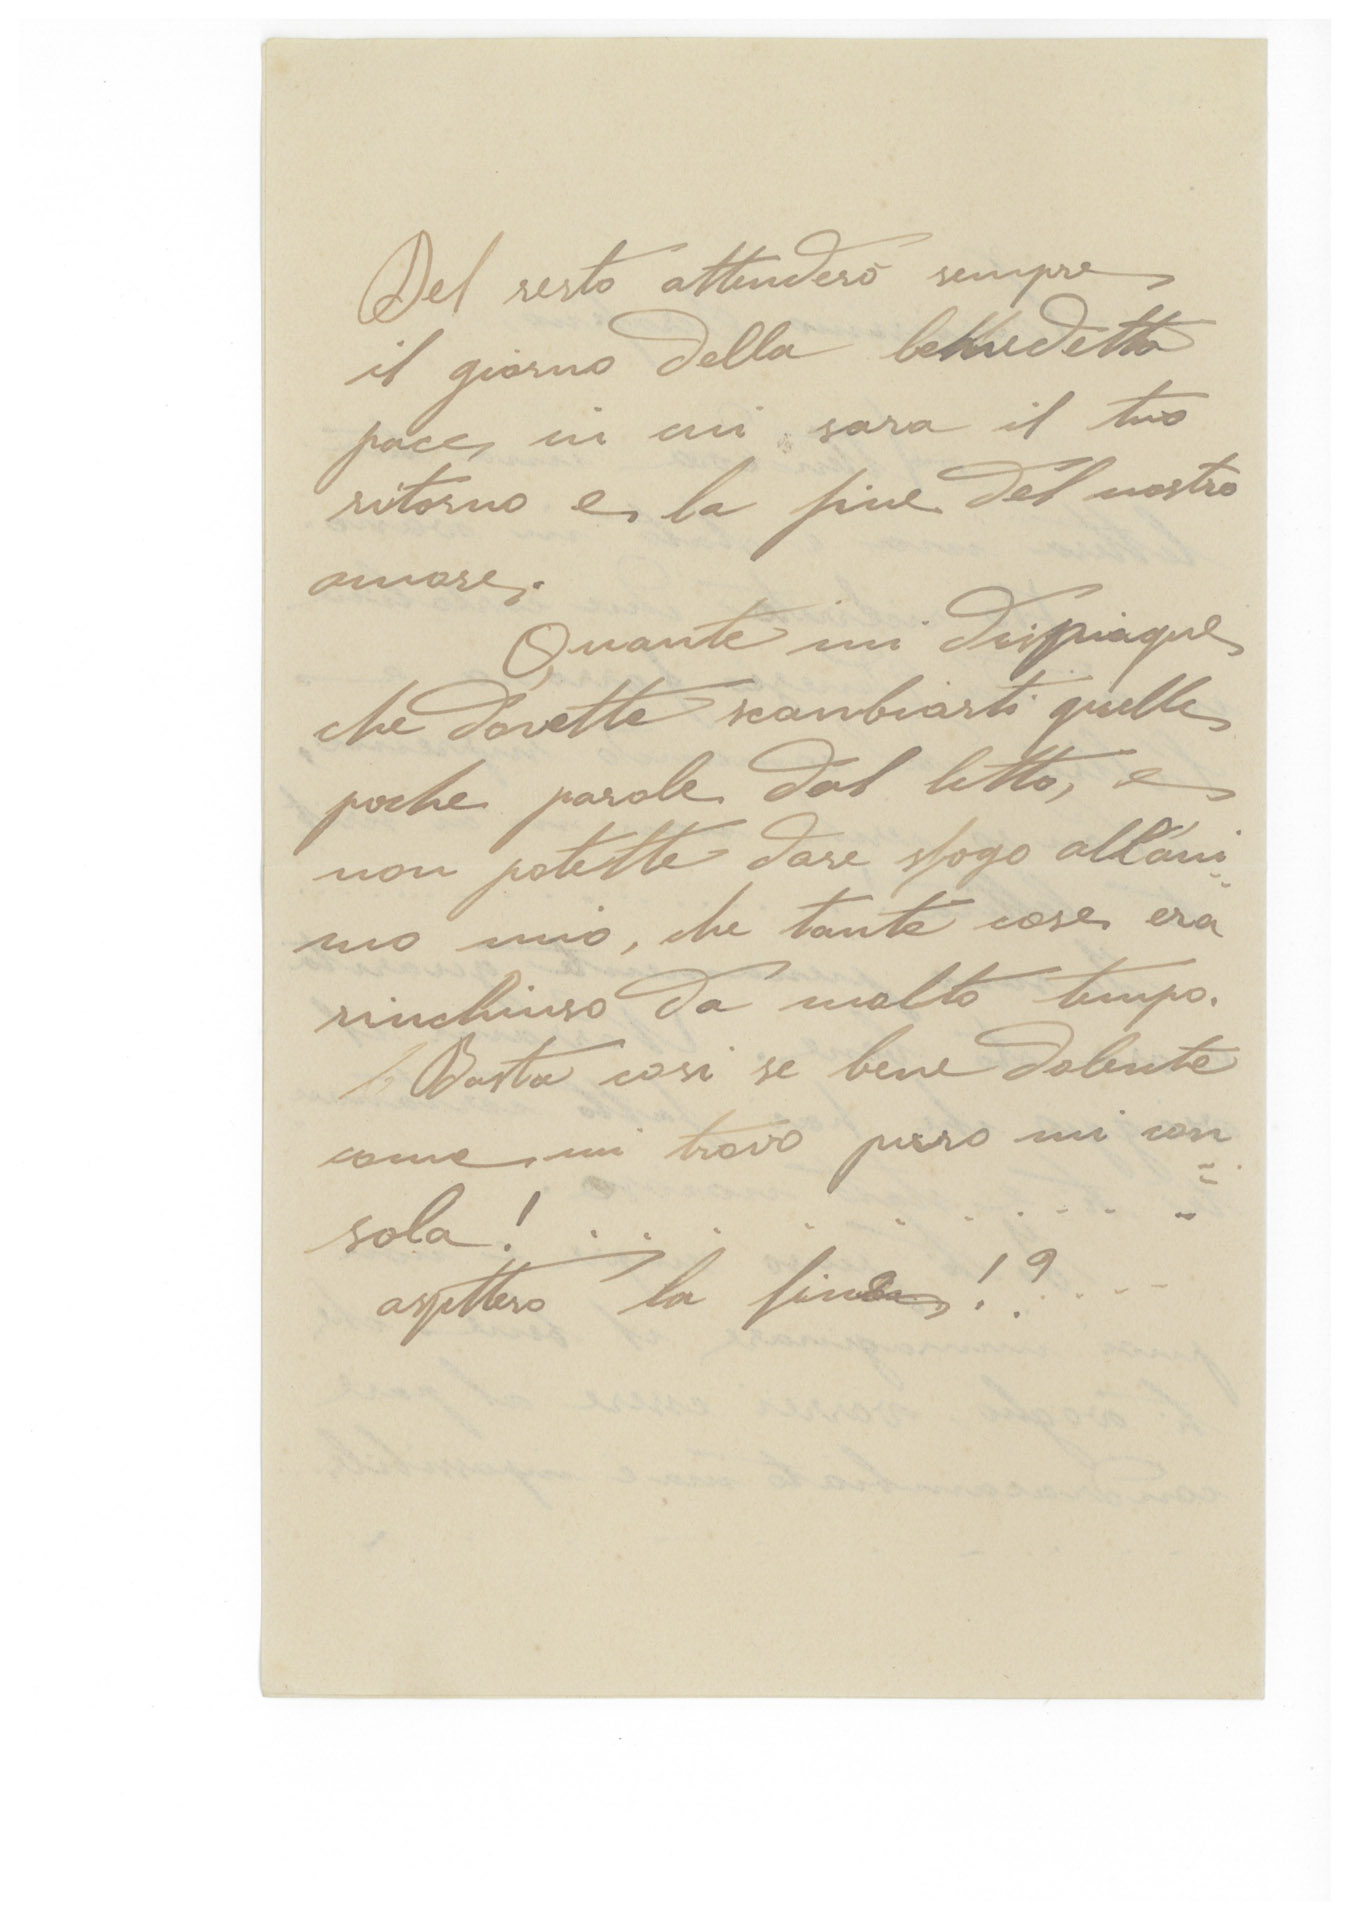 Del resto attenderò sempre
il giorno della benedetta
pace, in cui sara il tuo
ritorno e la fine del nostro
amore.
Quante mi dispiaque
che dovette scanbiarti quelle
poche parole dal letto, e
non potette dare sfogo all'ani=
mo mio, che tante cose era
rinchiuso da molto tempo.
Basta cosi se bene dolente
come mi trovo pero mi con=
sola! . . . . . . . . . .
aspettero la fine!? . . . .